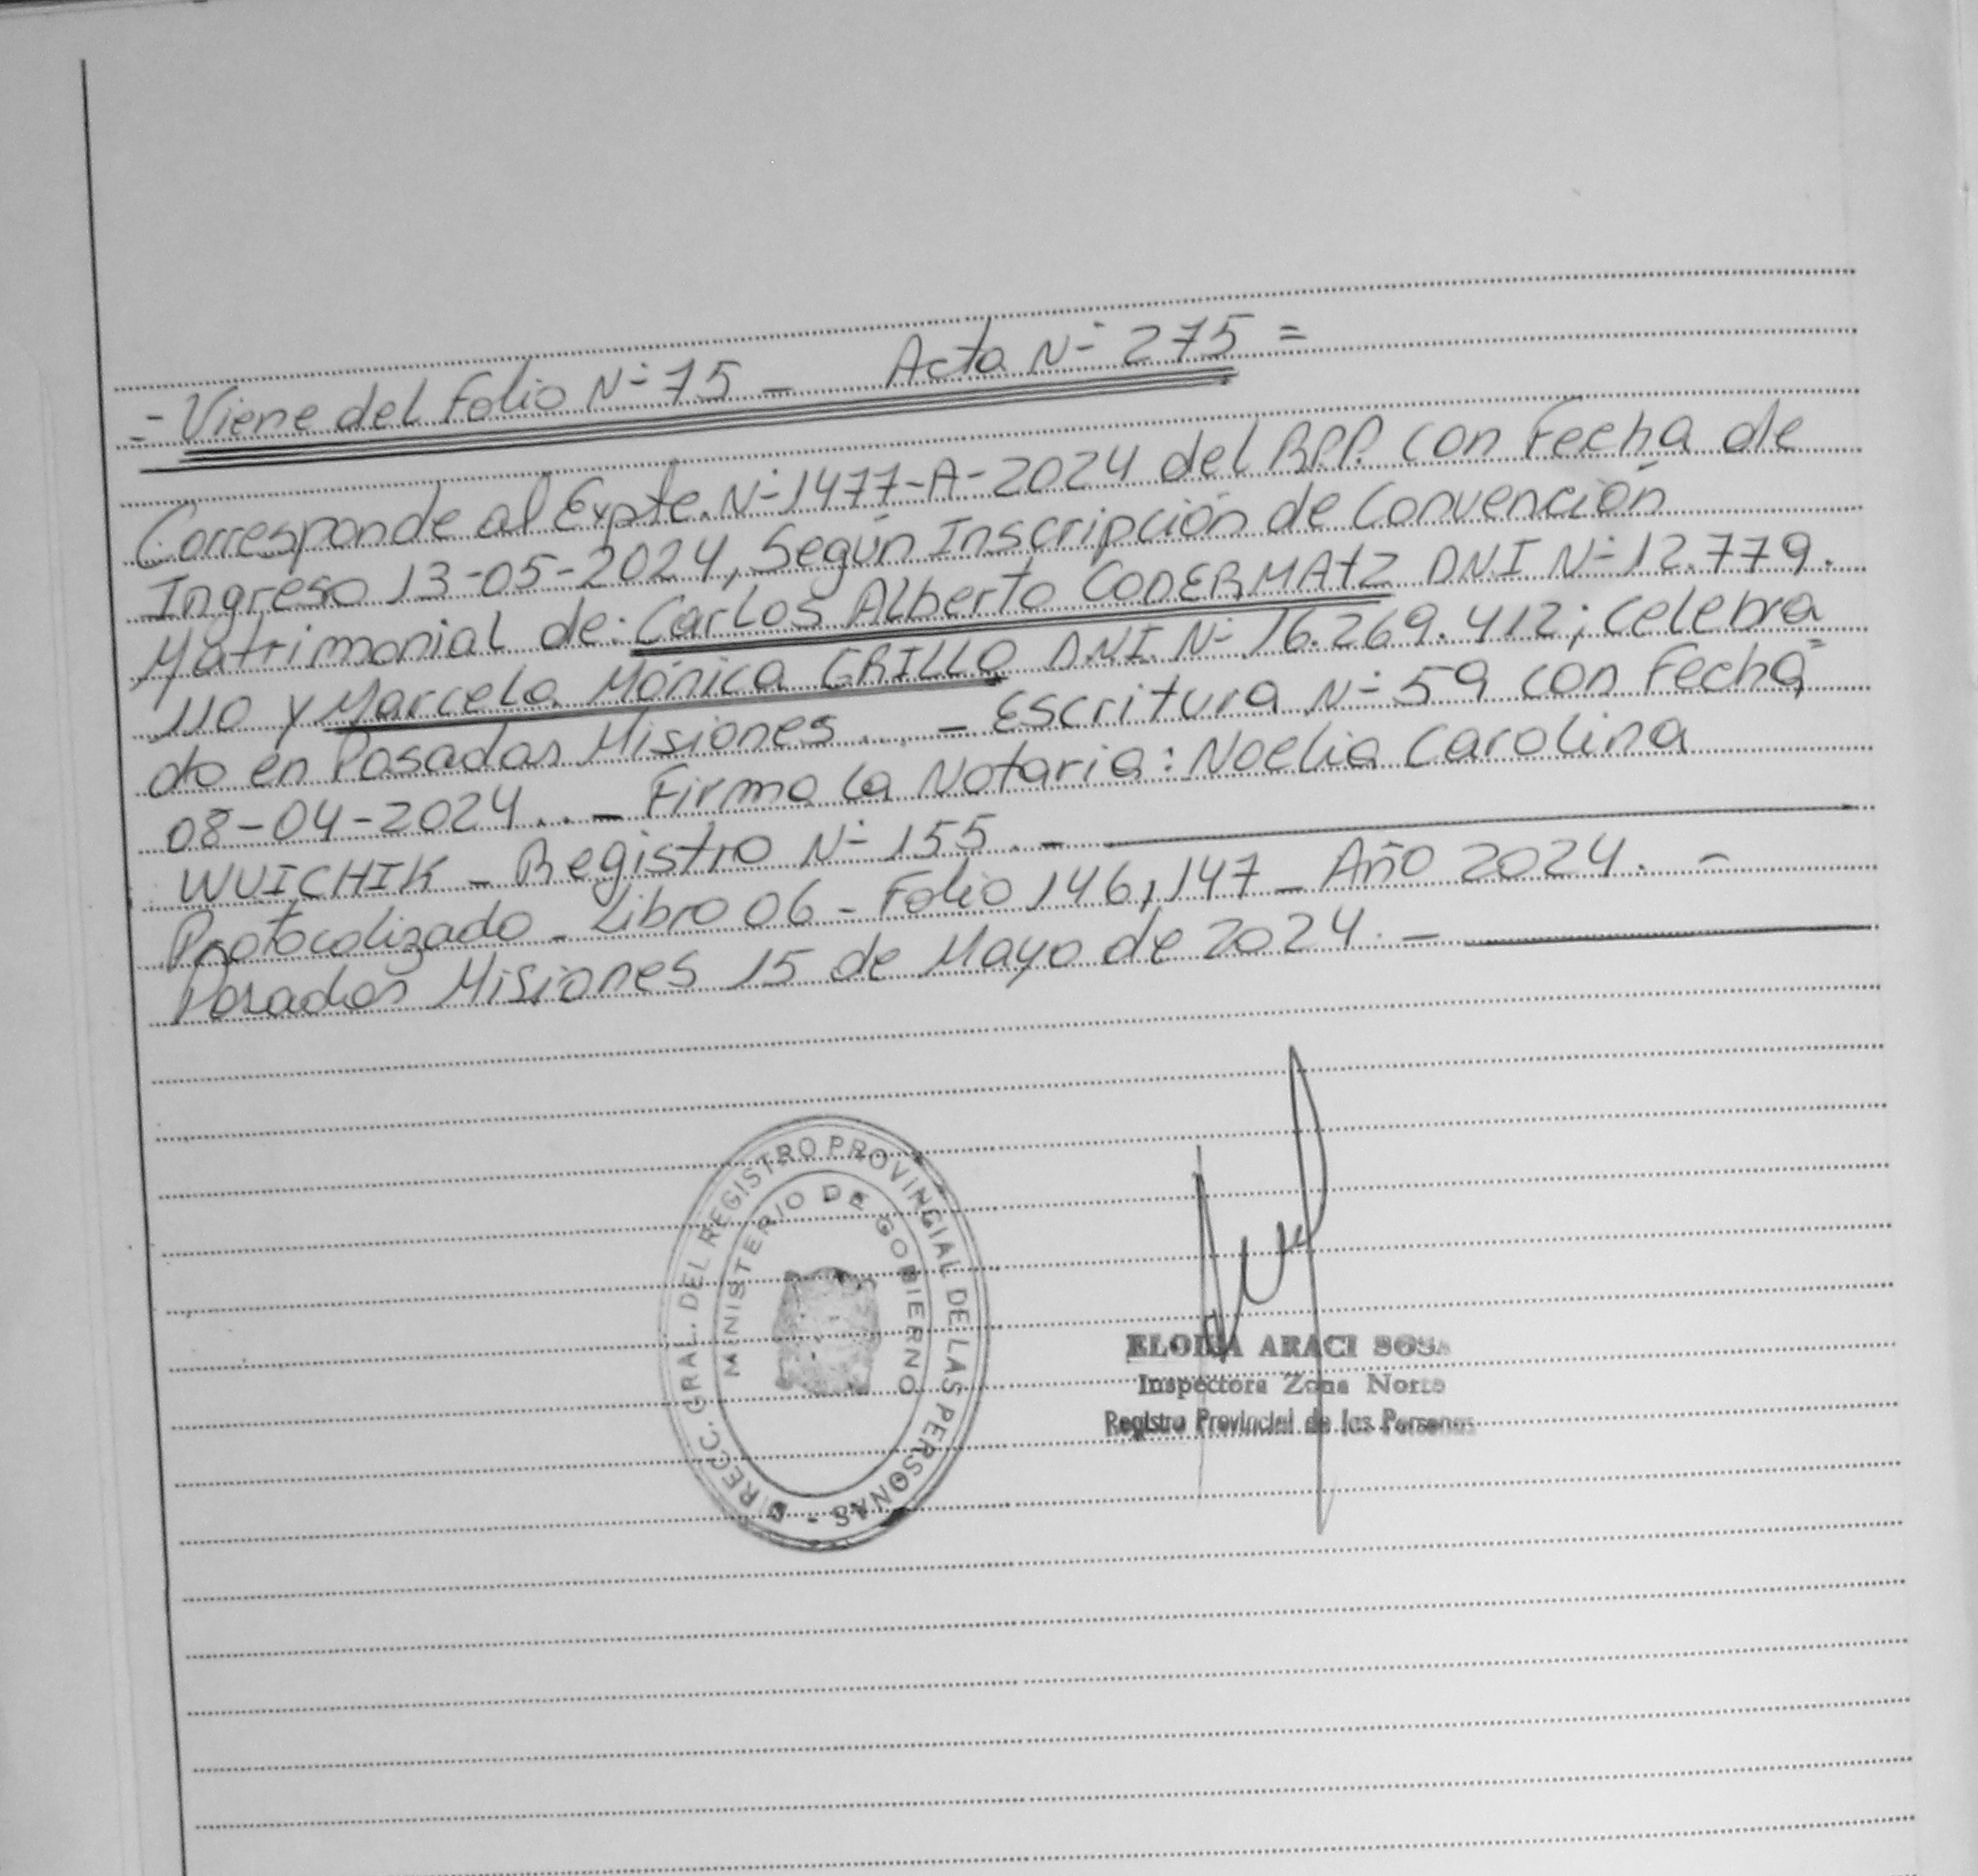 =Viene del Folio Nº 75 - Acta Nº 275 =
Corresponde al Expte. Nº 1477-A-2024 del RPP. con Fecha de
Ingreso 13-05-2024, Según Inscripción de Convención
Matrimonial de: Carlos Alberto CODERMATZ DNI Nº 12.779.
110 y Marcela Mónica GRILLO D.N.I. Nº 16.269.412; celebra=
do en Posadas Misiones... - Escritura Nº 59 con Fecha
08-04-2024.. - Firma la Notaria: Noelia Carolina
WUICHIK - Registro Nº 155. -
Protocolizado - Libro 06 - Folio 146, 147 - Año 2024. =
Posadas Misiones 15 de Mayo de 2024. -
DIRECC. GRAL. DEL REGISTRO PROVINCIAL DE LAS PERSONAS -
MINISTERIO DE GOBIERNO
ELOISA ARACI SOSA
Inspectora Zona Norte
Registro Provincial de las Personas